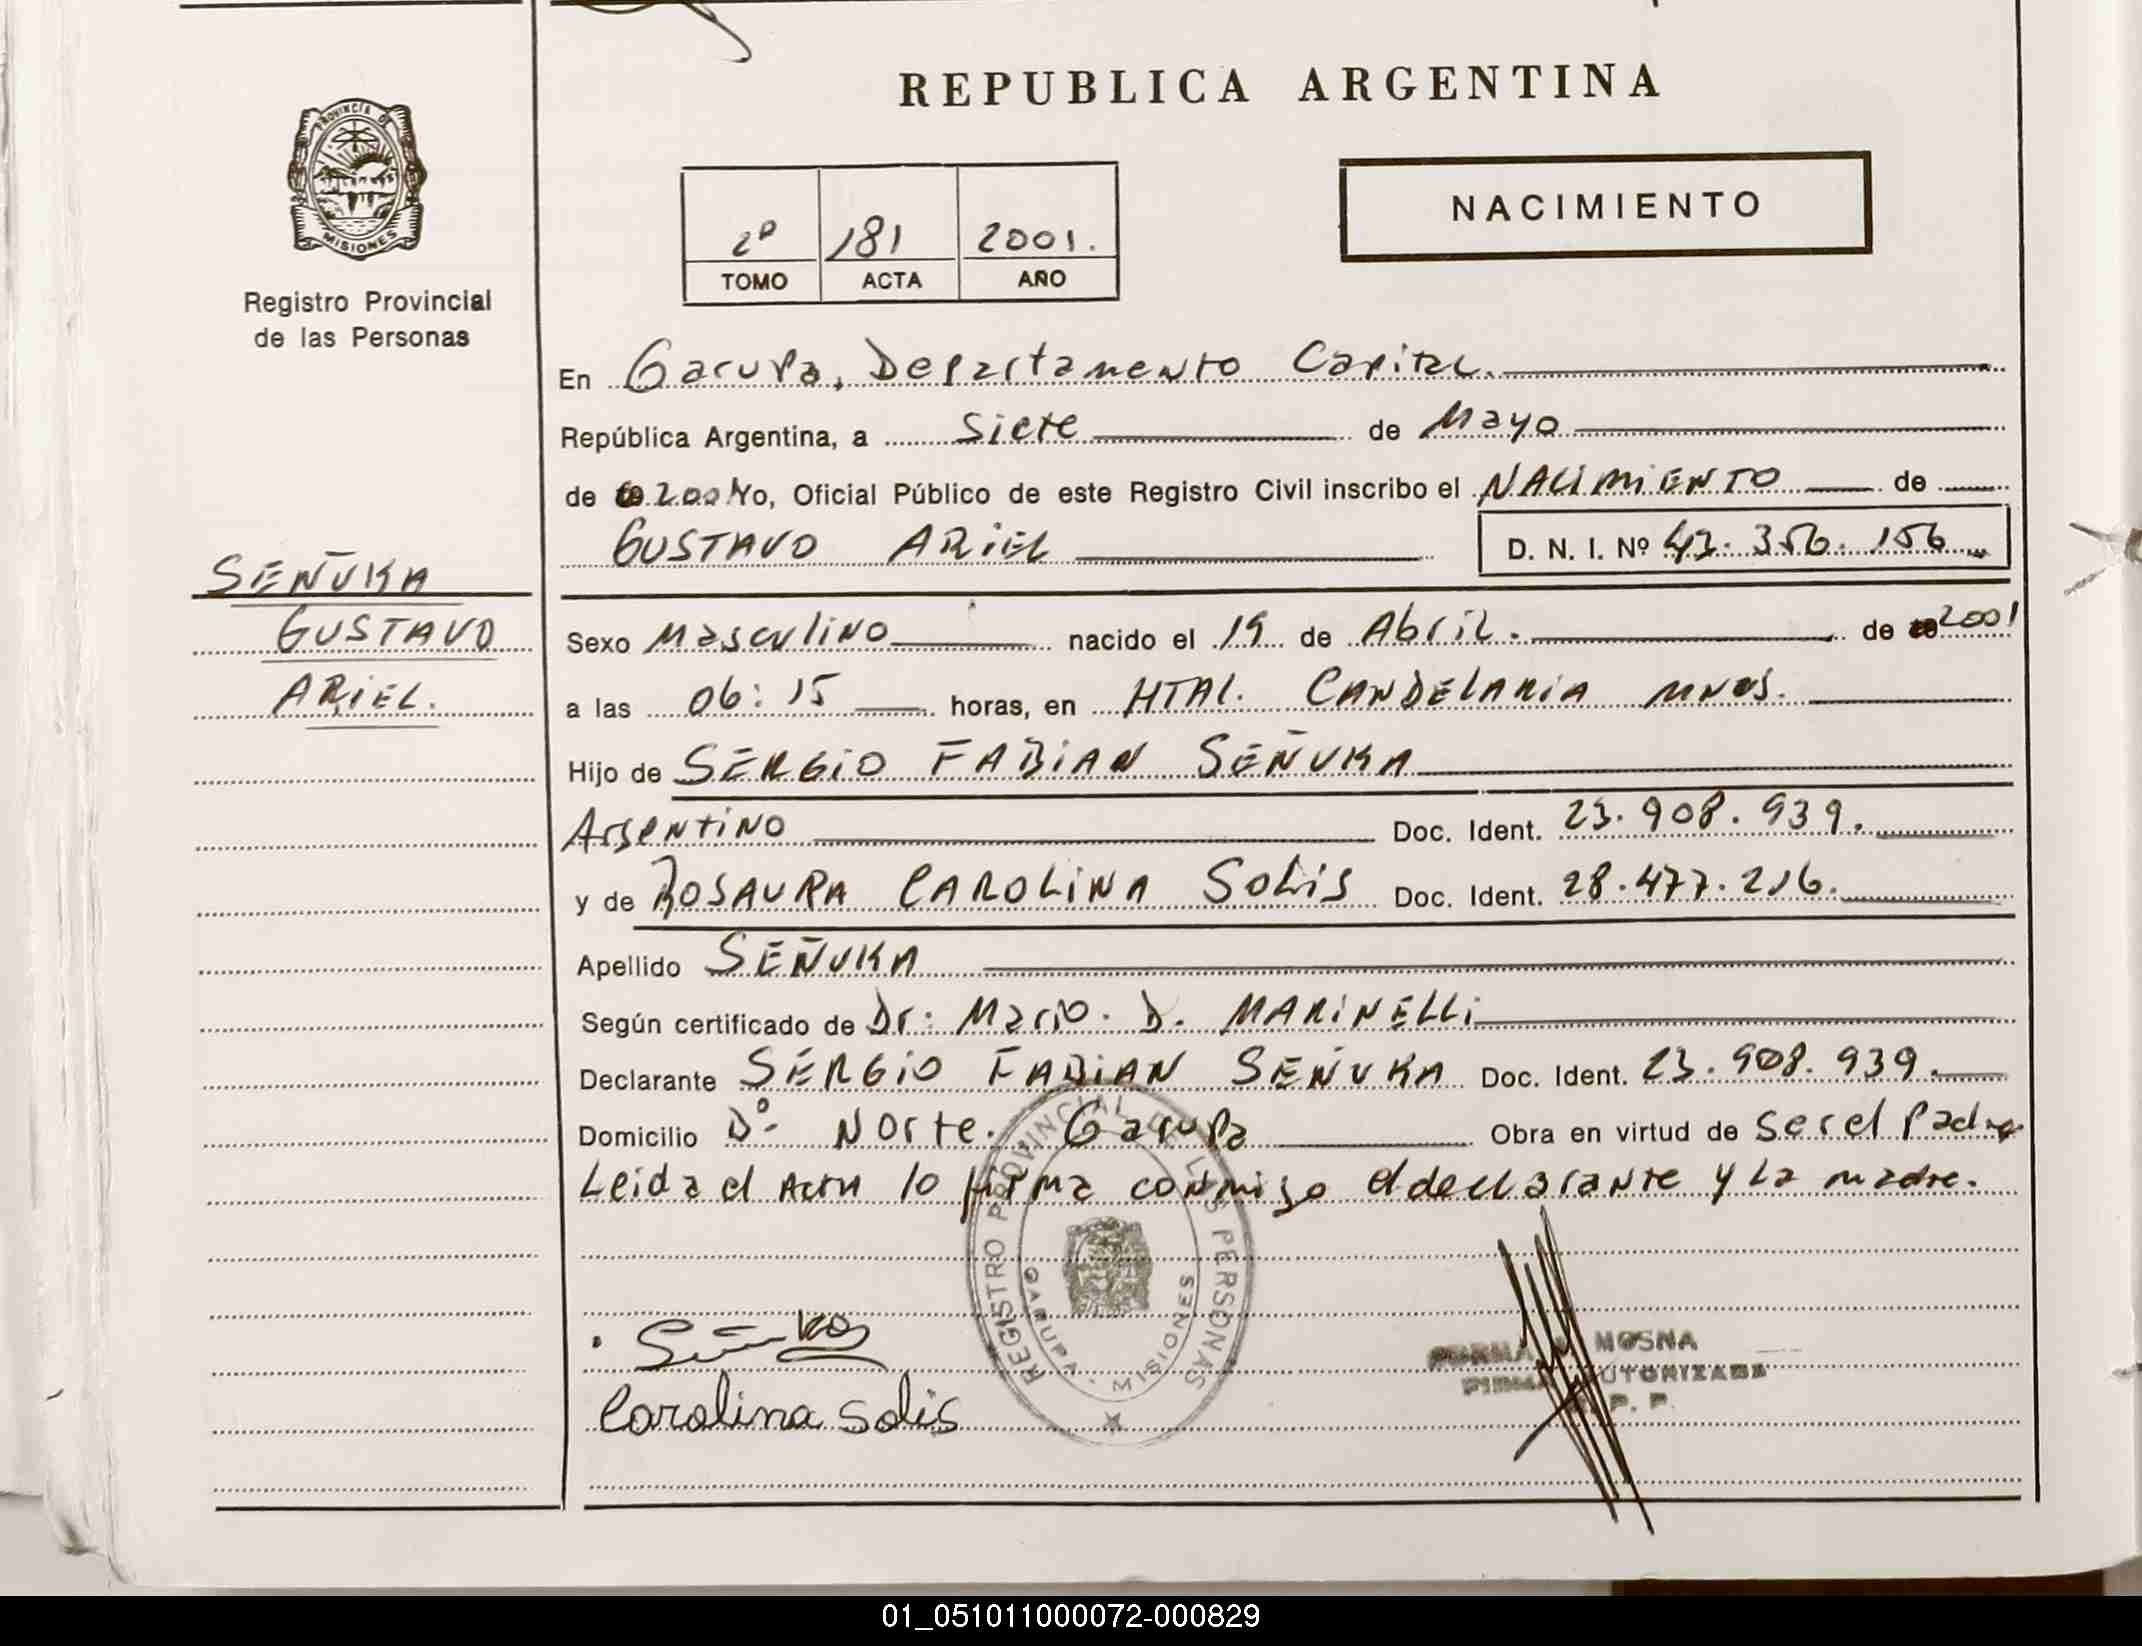 REPUBLICA ARGENTINA
PROVINCIA DE
MISIONES
Registro Provincial
de las Personas
NACIMIENTO
2º 181 2001.
TOMO ACTA AÑO
En Garupa, Departamento Capital.
República Argentina, a Siete de Mayo
de 2001 Yo, Oficial Público de este Registro Civil inscribo el NACIMIENTO de
GUSTAVO ARIEL D. N. I. Nº 43.356.156
SEÑUKA
GUSTAVO
ARIEL.
Sexo Masculino nacido el 19 de Abril. de 2001
a las 06:15 horas, en HTAL. CANDELARIA MNES.
Hijo de SERGIO FABIAN SEÑUKA
Argentino Doc. Ident. 23.908.939.
y de ROSAURA CAROLINA SOLIS Doc. Ident. 28.477.216.
Apellido SEÑUKA
Según certificado de Dr: Mario. D. MARINELLI
Declarante SERGIO FABIAN SEÑUKA Doc. Ident. 23.908.939.
Domicilio Bº Norte. Garupa Obra en virtud de ser el Padre
Leida el Acta lo firma conmigo el declarante y La madre.
REGISTRO PROVINCIAL DE LAS PERSONAS
GARUPA - MISIONES
MOSNA
AUTORIZADA
P. P.
Carolina Solis
01_051011000072-000829